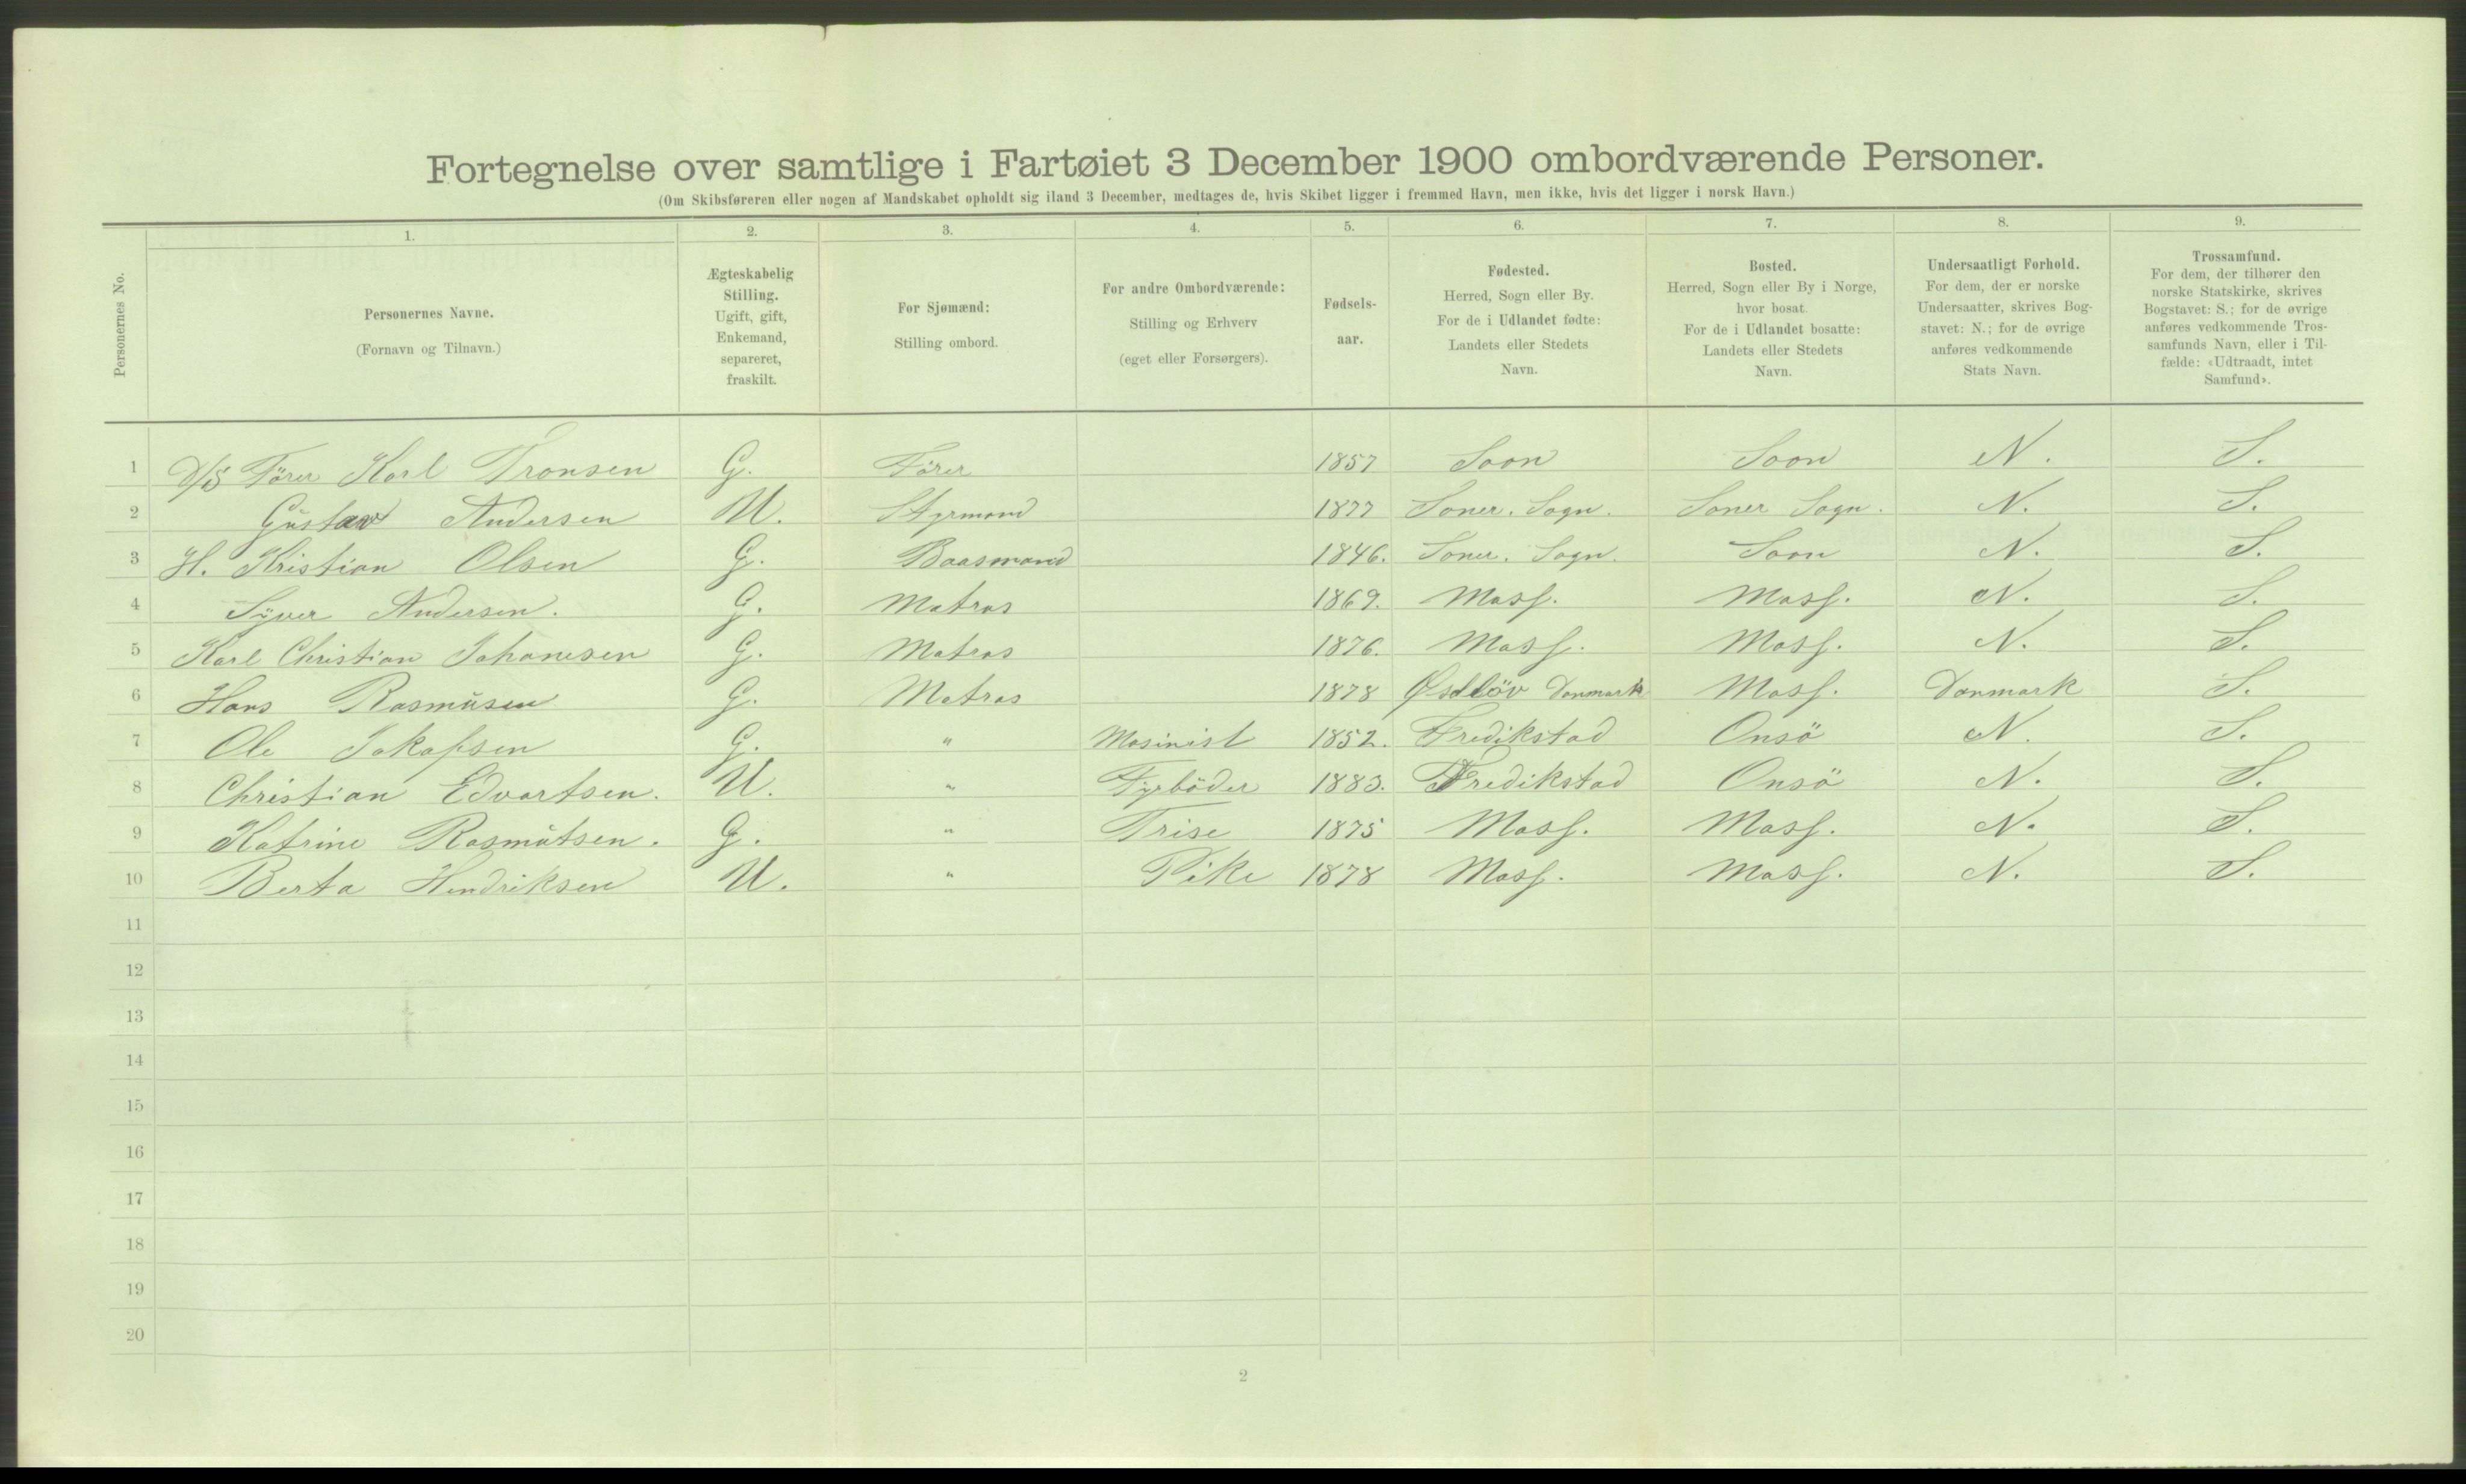 Fortegnelse over samtlige i Fartøiet 3 December 1900 ombordværende Personer.
(Om Skibsføreren eller nogen af Mandskabet opholdt sig iland 3 December, medtages de, hvis Skibet ligger i fremmed Havn, men ikke, hvis det ligger i norsk Havn.)
Personernes No.
1.
Personernes Navne.
(Fornavn og Tilnavn.)
2.
Ægteskabelig
Stilling.
Ugift, gift,
Enkemand,
separeret,
fraskilt.
3.
For Sjømænd:
Stilling ombord.
4.
For andre Ombordværende:
Stilling og Erhverv
(eget eller Forsørgers).
5.
Fødsels-
aar.
6.
Fødested.
Herred, Sogn eller By.
For de i Udlandet fødte:
Landets eller Stedets
Navn.
7.
Bosted.
Herred, Sogn eller By i Norge,
hvor bosat.
For de i Udlandet bosatte:
Landets eller Stedets
Navn.
8.
Undersaatligt Forhold.
For dem, der er norske
Undersaatter, skrives Bog-
stavet: N.; for de øvrige
anføres vedkommende
Stats Navn.
9.
Trossamfund.
For dem, der tilhører den
norske Statskirke, skrives
Bogstavet: S.; for de øvrige
anføres vedkommende Tros-
samfunds Navn, eller i Til-
fælde: «Udtraadt, intet
Samfund».
1 D/S Förer Karl Tronsen G. Förer 1857 Soon Soon N. S.
2 Gustav Andersen U. Styrmand 1877 Soner. Sogn. Soner Sogn. N. S.
3 H. Kristian Olsen G. Baasmand 1846. Soner. Sogn. Soon N. S.
4 Syver Andersen. G. Matros 1869. Moss. Moss. N. S.
5 Karl Christian Johanesen G. Matros 1876. Moss. Moss. N. S.
6 Hans Rasmusen G. Matros 1878 Danmark Moss. Danmark S.
7 Ole Jakopsen G. " Mosinist 1852. Fredikstad Onsö N. S.
8 Christian Edvartsen. U. " Fyrböder 1883. Fredikstad Onsö N. S.
9 Katrine Rasmutsen. G. " Trise 1875 Moss. Moss. N. S.
10 Berta Hendriksen U. " Pike 1878 Moss. Moss. N. S.
11
12
13
14
15
16
17
18
19
20
2